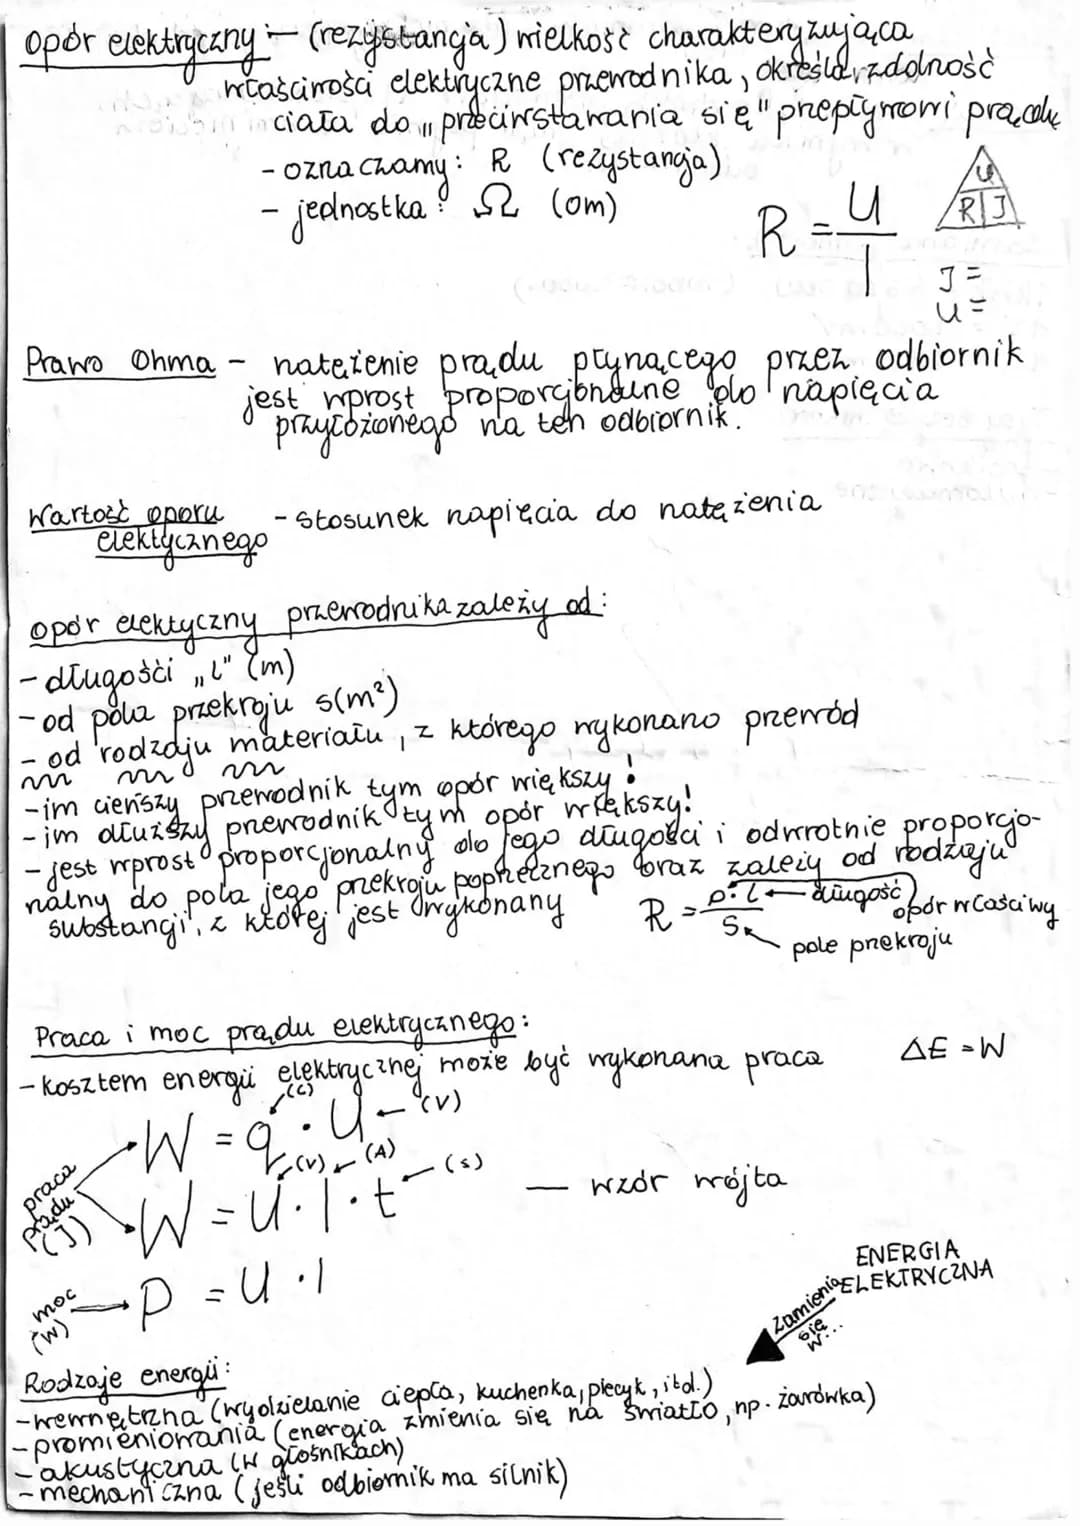 opór elektryczny – (rezystancja) wielkość charakteryzująca
właściwości elektryczne przewodnika, określa zdolność
ciała do „przeciwstawania się" przepływowi prądu
- oznaczamy: R (rezystancja)
- jednostka: Ω (om)
R = U / I
U
R | J
J =
U =
Prawo Ohma - natężenie prądu płynącego przez odbiornik
jest wprost proporcjonalne do napięcia
przyłożonego na ten odbiornik.
Wartość oporu elektycznego - stosunek napięcia do natężenia
opór elektyczny przewodnika zależy od:
- długości „l" (m)
- od pola przekroju s(m²)
- od rodzaju materiału, z którego wykonano przewód
- im cieńszy przewodnik tym opór większy!
- im dłuższy przewodnik tym opór większy!
- jest wprost proporcjonalny do jego długości i odwrotnie proporcjo-
nalny do pola jego przekroju poprzecznego oraz zależy od rodzaju
substancji, z której jest wykonany
R = ρ·l / S
długość
opór właściwy
pole przekroju
Praca i moc prądu elektrycznego:
- kosztem energii elektrycznej może być wykonana praca ΔE = W
(C) (V)
W = q · U
praca prądu (J)
(V) (A) (s)
W = U · I · t — wzór wójta
moc (W) P = U · I
ENERGIA
ELEKTRYCZNA
zamienia
się
w...
Rodzaje energii:
- wewnętrzna (wydzielanie ciepła, kuchenka, piecyk, itd.)
- promieniowania (energia zmienia się na światło, np. żarówka)
- akustyczna (w głośnikach)
- mechaniczna (jeśli odbiornik ma silnik)